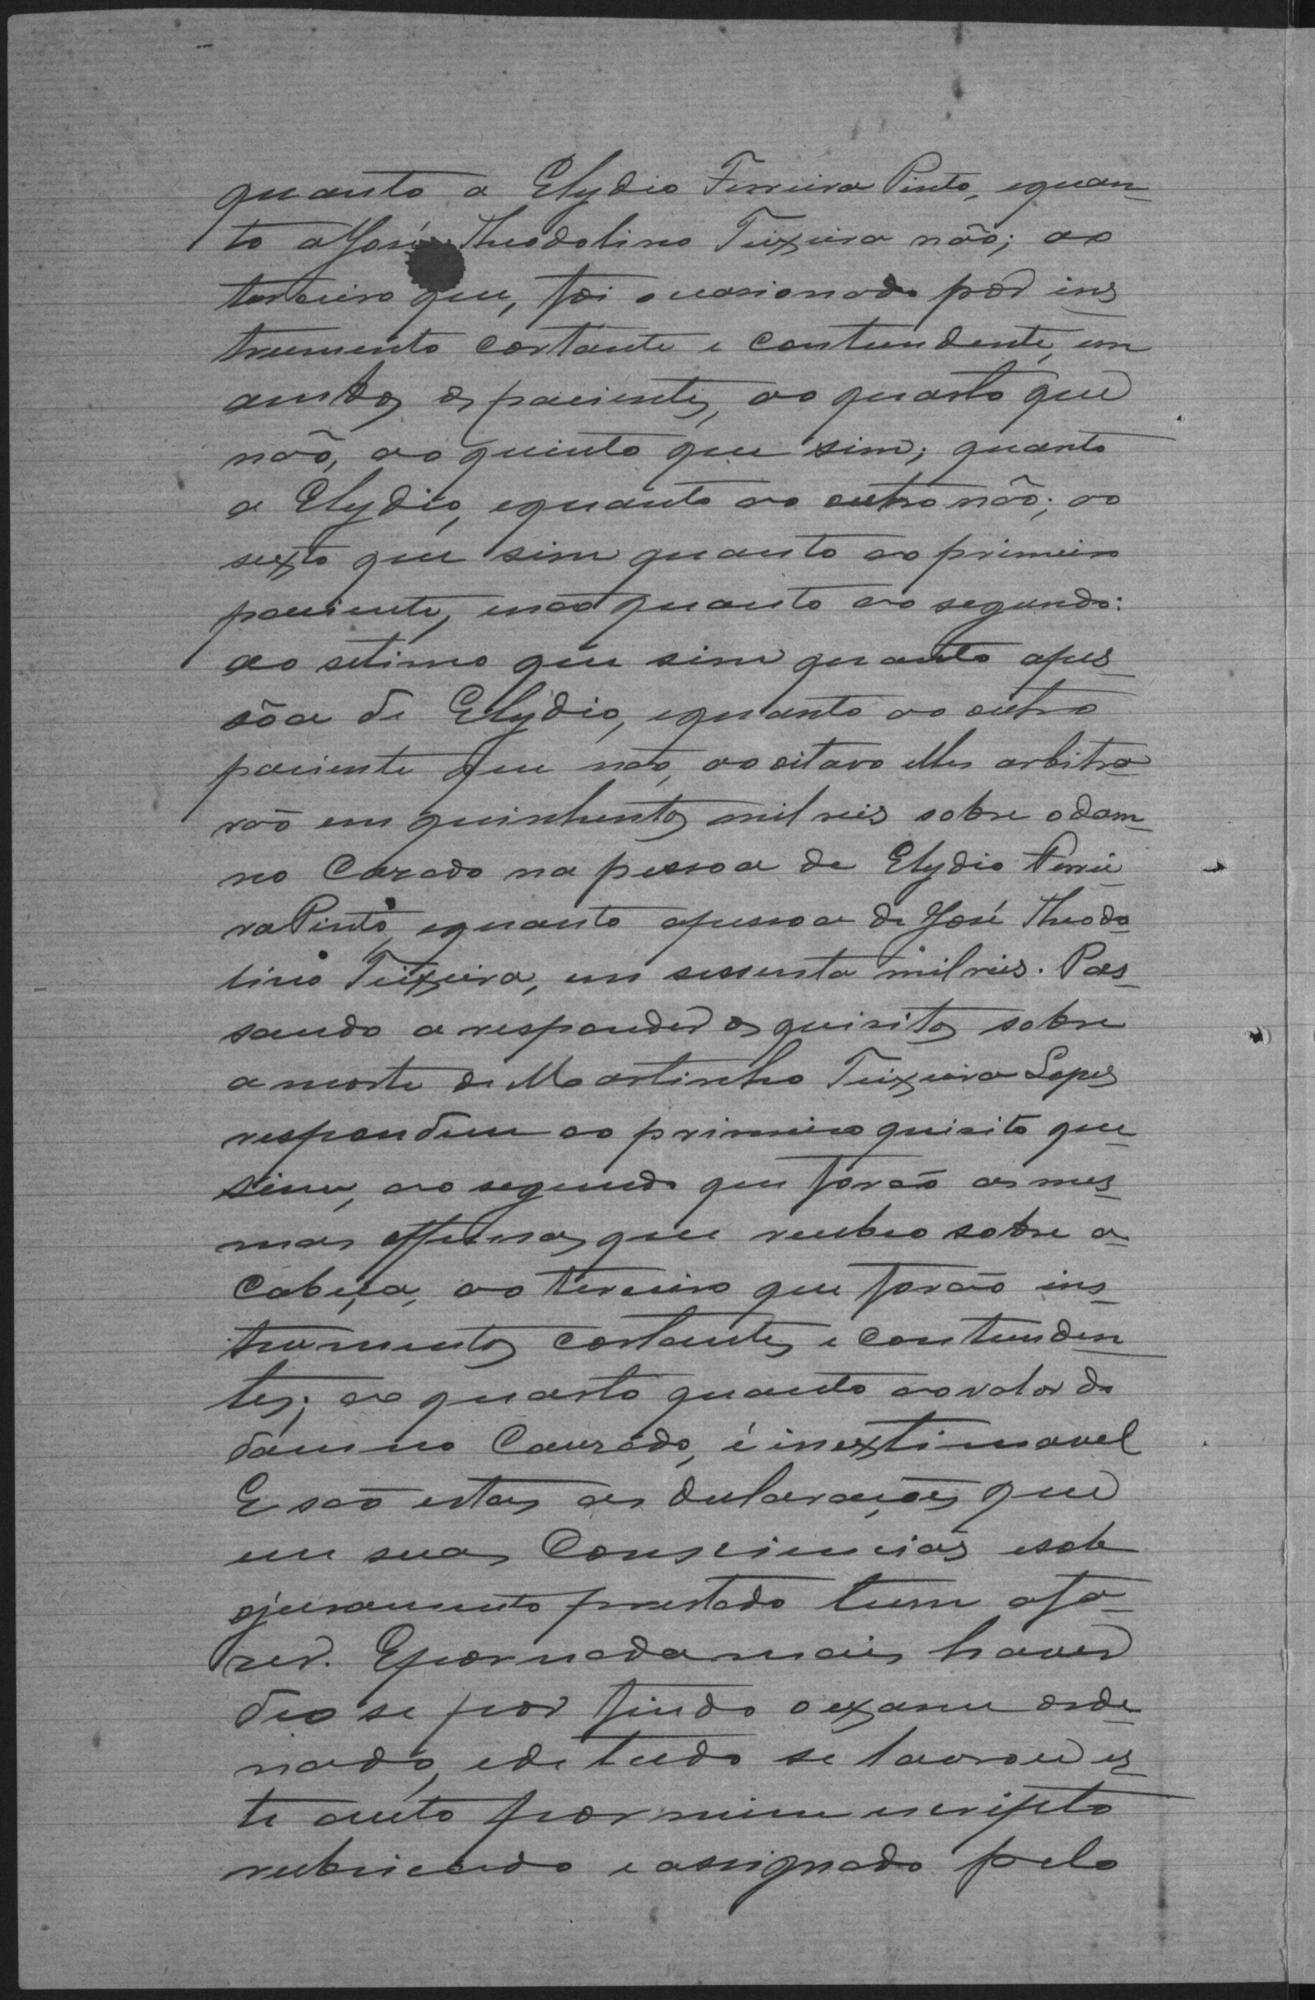 quanto a Elydio Ferreira Pinto, equan-
to a José Theodolino Teixeira não; ao
terceiro que, foi occasionado por ins-
trumento cortante e contundente, em
ambos os pacientes, ao quarto que
não, ao quinto que sim; quanto
a Elydio, equanto ao outro não; ao
sexto que sim quanto ao primeiro
paciente, enão quanto ao segundo:
ao setimo que sim quanto apes-
sôa de Elydio, equanto ao outro
paciente que não, ao oitavo elles arbitra-
rão em quinhentos mil reis sobre o dam-
no Cazado na pessoa de Elydio Ferrei-
ra Pinto, equanto apessoa de José Theodo-
lino Teixeira, em sessenta mil reis. Pas-
sando a responder os quisitos sobre
a morte de Martinho Teixeira Lopes
respondem ao primeiro quisito que
sim, ao segundo que forão as mes-
mas offensas que recebeo sobre a
Cabeça, ao terceiro que forão ins-
trumentos cortantes e contunden-
tes; ao quarto quanto ao valor do
damno Cauzado, é inextimavel
E são estas as declarações que
em suas Consciencias esob
ojuramento prestado tem afa-
zer. Epor nada mais haver
deo se por findo o exame orde-
nado, ede tudo se lavrou es-
te auto por mim escripto
rubricado e assignado pelo